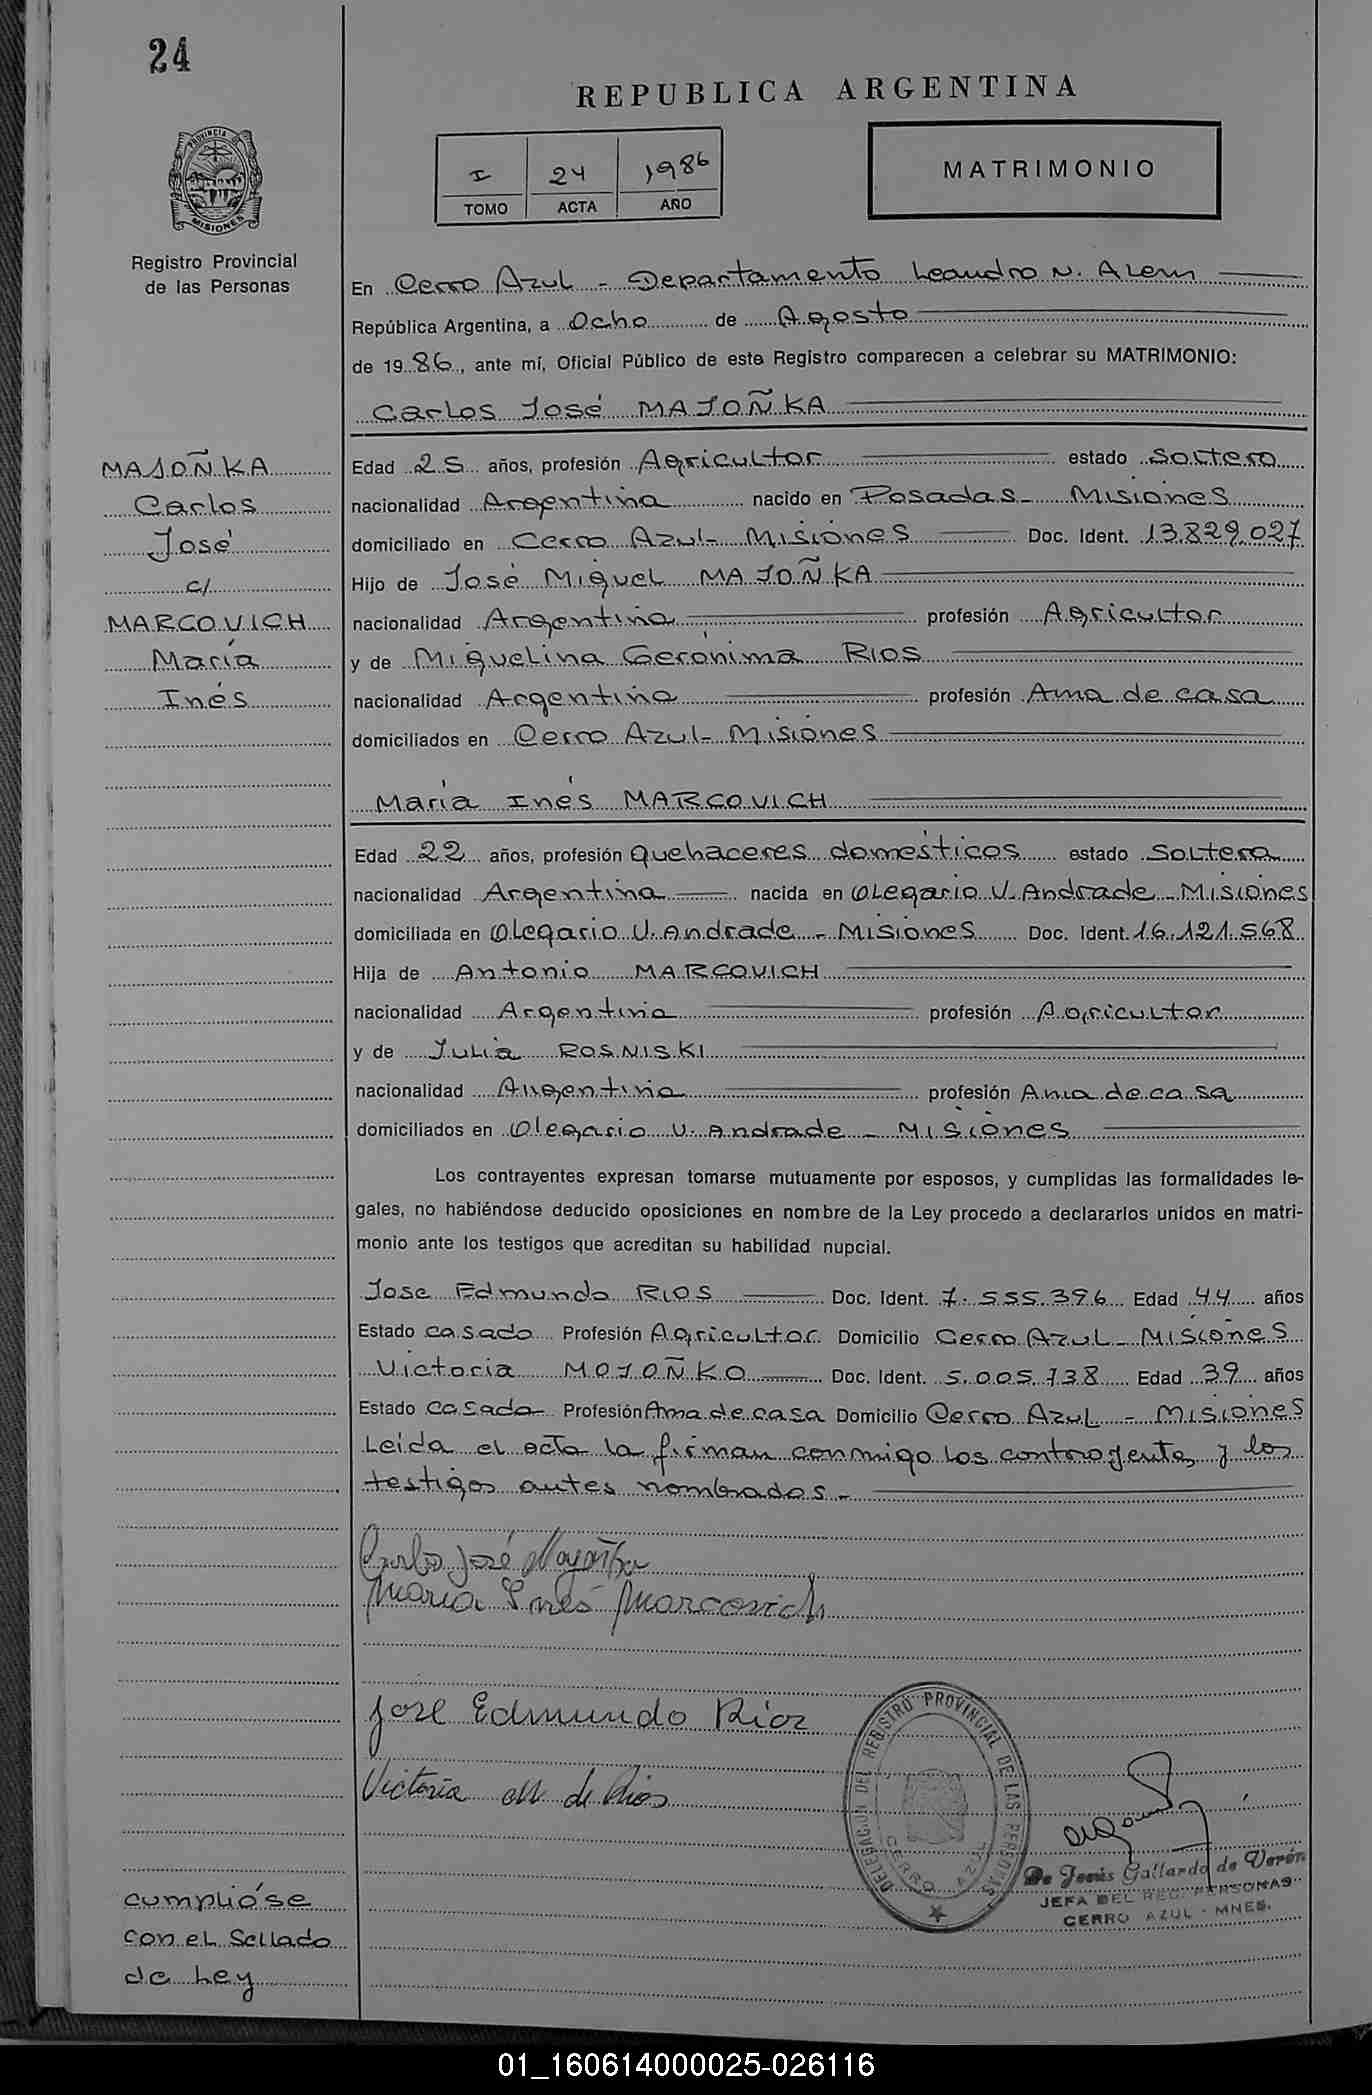 24
REPUBLICA ARGENTINA
I 24 1986
TOMO ACTA AÑO
MATRIMONIO
PROVINCIA
MISIONES
Registro Provincial
de las Personas
En Cerro Azul - Departamento Leandro N. Alem
República Argentina, a Ocho de Agosto
de 1986, ante mí, Oficial Público de este Registro comparecen a celebrar su MATRIMONIO:
Carlos José MAJOÑKA
MAJOÑKA
Carlos
José
c/
MARCOVICH
María
Inés
Edad 25 años, profesión Agricultor estado Soltero
nacionalidad Argentina nacido en Posadas - Misiones
domiciliado en Cerro Azul - Misiones Doc. Ident. 13.829.027
Hijo de José Miguel MAJOÑKA
nacionalidad Argentina profesión Agricultor
y de Miguelina Gerónima RIOS
nacionalidad Argentina profesión Ama de casa
domiciliados en Cerro Azul - Misiones
María Inés MARCOVICH
Edad 22 años, profesión quehaceres domésticos estado Soltera
nacionalidad Argentina nacida en Olegario V. Andrade - Misiones
domiciliada en Olegario V. Andrade - Misiones Doc. Ident. 16.121.568
Hija de Antonio MARCOVICH
nacionalidad Argentina profesión Agricultor
y de Julia ROSNISKI
nacionalidad Argentina profesión Ama de casa
domiciliados en Olegario V. Andrade - Misiones
Los contrayentes expresan tomarse mutuamente por esposos, y cumplidas las formalidades le-
gales, no habiéndose deducido oposiciones en nombre de la Ley procedo a declararlos unidos en matri-
monio ante los testigos que acreditan su habilidad nupcial.
Jose Edmundo RIOS Doc. Ident. 7.555.396 Edad 44 años
Estado casado Profesión Agricultor Domicilio Cerro Azul - Misiones
Victoria MOJOÑKO Doc. Ident. 5.005.738 Edad 39 años
Estado Casada Profesión Ama de casa Domicilio Cerro Azul - Misiones
Leida el acta la firman conmigo los contrayentes y los
testigos antes nombrados.-
Carlos José Mayoñka
Maria Inés Marcovich
Jose Edmundo Rios
Victoria M. de Rios
DELEGACION DEL REGISTRO PROVINCIAL DE LAS PERSONAS
CERRO AZUL
De Jesús Gallardo de Verón
JEFA DEL REG. PERSONAS
CERRO AZUL - MNES.
cumplióse
con el Sellado
de Ley
01_160614000025-026116